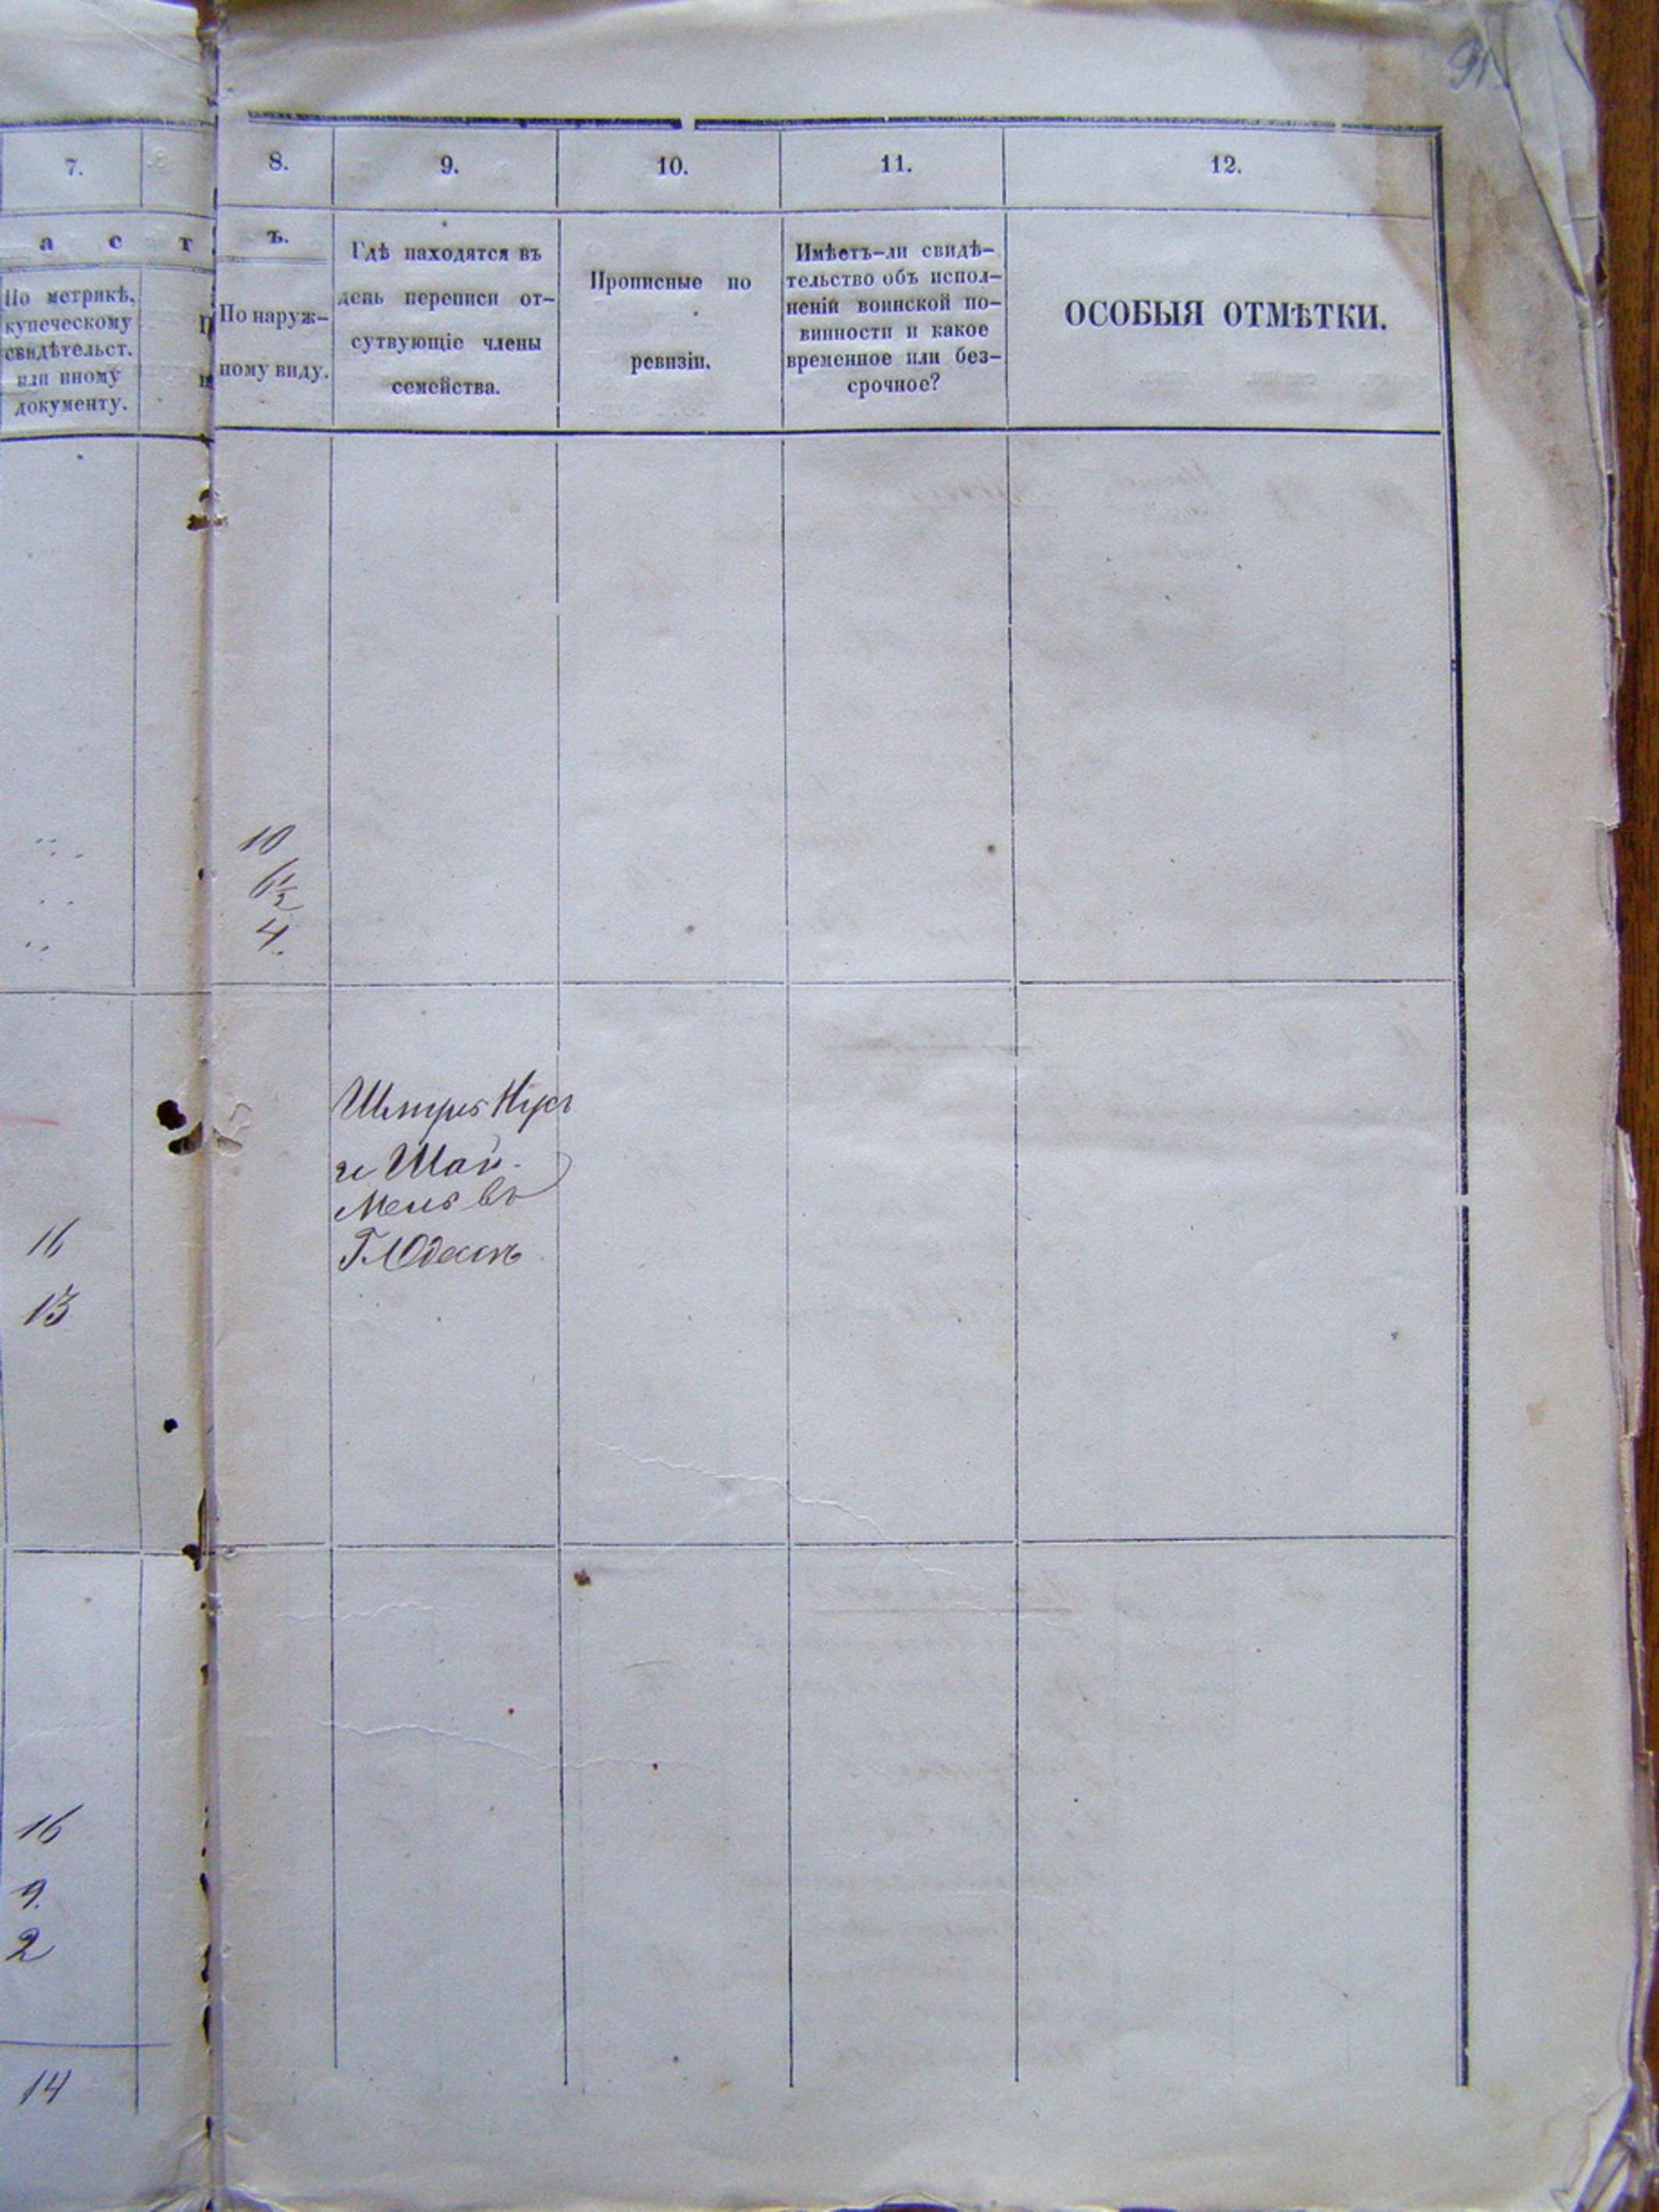 91
7.
8.
9.
10.
11.
12.
а с т
ъ.
По метрикѣ,
купеческому
свидѣтельст.
или иному
документу.
По наруж-
ному виду.
Гдѣ находятся въ
день переписи от-
сутвующіе члены
семейства.
Прописные по
ревизіи.
Имѣетъ-ли свидѣ-
тельство объ испол-
неній воинской по-
винности и какое
временное или без-
срочное?
ОСОБЫЯ ОТМѢТКИ.
10
6½
4.
и Шай-
Мель въ
Г. Одессѣ
16
13
16
9.
2
14